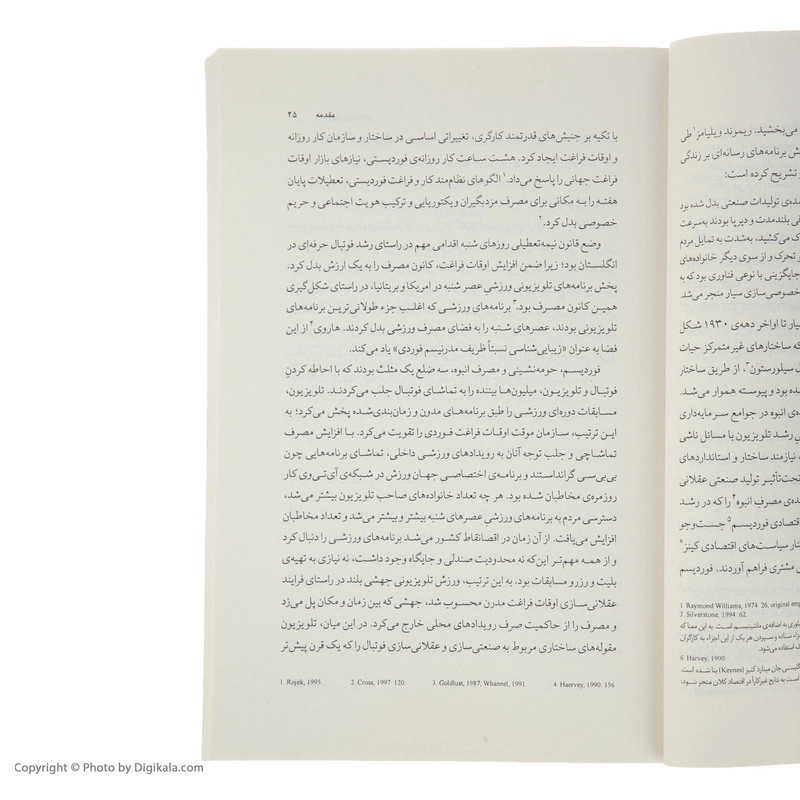 مقدمه ۲۵
با تکیه بر جنبش‌های قدرتمند کارگری، تغییراتی اساسی در ساختار و سازمان کار روزانه
و اوقات فراغت ایجاد کرد. هشت ساعت کار روزانه‌ی فوردیستی، نیازهای بازار اوقات
فراغت جهانی را پاسخ می‌داد.۱ الگوهای نظام‌مند کار و فراغت فوردیستی، تعطیلات پایان
هفته را به مکانی برای مصرف مزدبگیران ویکتوریایی و ترکیب هویت اجتماعی و حریم
خصوصی بدل کرد.۲
وضع قانون نیمه‌تعطیلی روزهای شنبه اقدامی مهم در راستای رشد فوتبال حرفه‌ای در
انگلستان بود؛ زیرا ضمن افزایش اوقات فراغت، کانون مصرف را به یک ارزش بدل کرد.
پخش برنامه‌های تلویزیونی ورزشی عصر شنبه در امریکا و بریتانیا، در راستای شکل‌گیری
همین کانون مصرف بود.۳ برنامه‌های ورزشی که اغلب جزء طولانی‌ترین برنامه‌های
تلویزیونی بودند، عصرهای شنبه را به فضای مصرف ورزشی بدل کردند. هاروی۴ از این
فضا به عنوان «زیبایی‌شناسی نسبتاً ظریف مدرنیسم فوردی» یاد می‌کند.
فوردیسم، حومه‌نشینی و مصرف انبوه، سه ضلع یک مثلث بودند که با احاطه کردن
فوتبال و تلویزیون، میلیون‌ها بیننده را به تماشای فوتبال جلب می‌کردند. تلویزیون،
مسابقات دوره‌ای ورزشی را طبق برنامه‌های مدون و زمان‌بندی‌شده پخش می‌کرد؛ به
این ترتیب، سازمان موقت اوقات فراغت فوردی را تقویت می‌کرد. با افزایش مصرف
تماشاچی و جلب توجه آنان به رویدادهای ورزشی داخلی، تماشای برنامه‌هایی چون
بی‌بی‌سی گراندستند و برنامه‌ی اختصاصی جهان ورزش در شبکه‌ی آی‌تی‌وی کار
روزمره‌ی مخاطبان شده بود. هر چه تعداد خانواده‌های صاحب تلویزیون بیشتر می‌شد،
دسترسی مردم به برنامه‌های ورزشی عصرهای شنبه بیشتر و بیشتر می‌شد و تعداد مخاطبان
افزایش می‌یافت. از آن زمان در اقصانقاط کشور می‌شد برنامه‌های ورزشی را دنبال کرد
و از همه مهم‌تر این‌که نه محدودیت صندلی و جایگاه وجود داشت، نه نیازی به تهیه‌ی
بلیت و رزرو مسابقات بود. به این ترتیب، ورزش تلویزیونی جهشی بلند در راستای فرایند
عقلانی‌سازی اوقات فراغت مدرن محسوب شد، جهشی که بین زمان و مکان پل می‌زد
و مصرف را از حاکمیت صرف رویدادهای محلی خارج می‌کرد. در این میان، تلویزیون
مقوله‌های ساختاری مربوط به صنعتی‌سازی و عقلانی‌سازی فوتبال را که یک قرن پیش‌تر
1. Rojek, 1995. 2. Cross, 1997: 120. 3. Goldlust, 1987, Whannel, 1991. 4. Haervey, 1990: 156.
می‌بخشید. ریموند ویلیامز۱ طی
ش برنامه‌های رسانه‌ای بر زندگی
تشریح کرده است:
ده‌ی تولیدات صنعتی بدل شده بود
فی بلندمدت و دیرپا بودند به‌سرعت
ک می‌کشید، به‌شدت به تمایل مردم
تحرک و از سوی دیگر خانواده‌های
جایگزینی با نوعی فناوری بود که به
خصوصی‌سازی سیار منجر می‌شد.
یار تا اواخر دهه‌ی ۱۹۳۰ شکل
که ساختارهای غیرمتمرکز حیات
ل سیلورستون۳، از طریق ساختار
ده بود و پیوسته هموار می‌شد.
ه‌ی انبوه در جوامع سرمایه‌داری
ی رشد تلویزیون با مسائل ناشی
نیازمند ساختار و استانداردهای
تحت‌تأثیر تولید صنعتی عقلانی
ده‌ی مصرف انبوه۴ را که در رشد
قتصادی فوردیسم۵ جست‌وجو
تار سیاست‌های اقتصادی کینز۷
مشتری فراهم آوردند. فوردیسم
1. Raymond Williams, 1974: 26, original emp
3. Silverstone, 1994: 62.
یاوری به اضافه‌ی ماشینیسم است. به این معنا که
زاء ساده و سپردن هر یک از این اجزاء به کارگران
استفاده می‌شود.
6. Harvey, 1990
گلیسی جان مینارد کینز (Keynes) بنا شده است.
است به نتایج غیرکارآ در اقتصاد کلان منجر شود؛
Copyright © Photo by Digikala.com